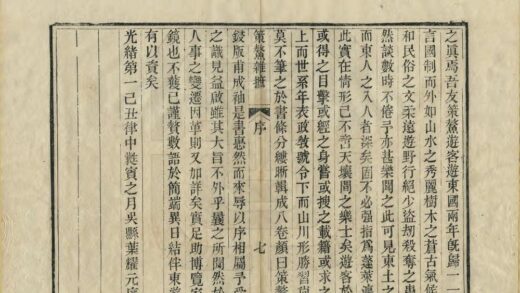 之眞焉吾友策鰲遊客遊東國兩年旣歸一一
言國制而外如山水之秀麗樹木之蒼古氣候
和民俗之文柔遠遊野行絕少盜刼殺奪之患
然談數時不倦予亦甚樂聞之此可見東土之
而東人之入人者深矣固不必强指爲蓬萊瀛
此實在情形已不啻天壤間之樂土矣遊客於
或得之目擊或經之身嘗或搜之載籍或求之
上而世系年表政敎號令下而山川形勝習
莫不筆之於書條分縷晰輯成八卷顏曰策鰲
策鰲雜摭
序
七
鋟版甫成袖是書惠然而來辱以序相屬予受
之識見益啟雖其大旨不外乎義之所閔然於
人事之變遷因革則又加詳矣資足助博覽
鏡也不獲已謹贅數語於簡端異日結伴東遊
有以資矣
光緒第一己丑律中蕤賓之月吳縣葉耀元序